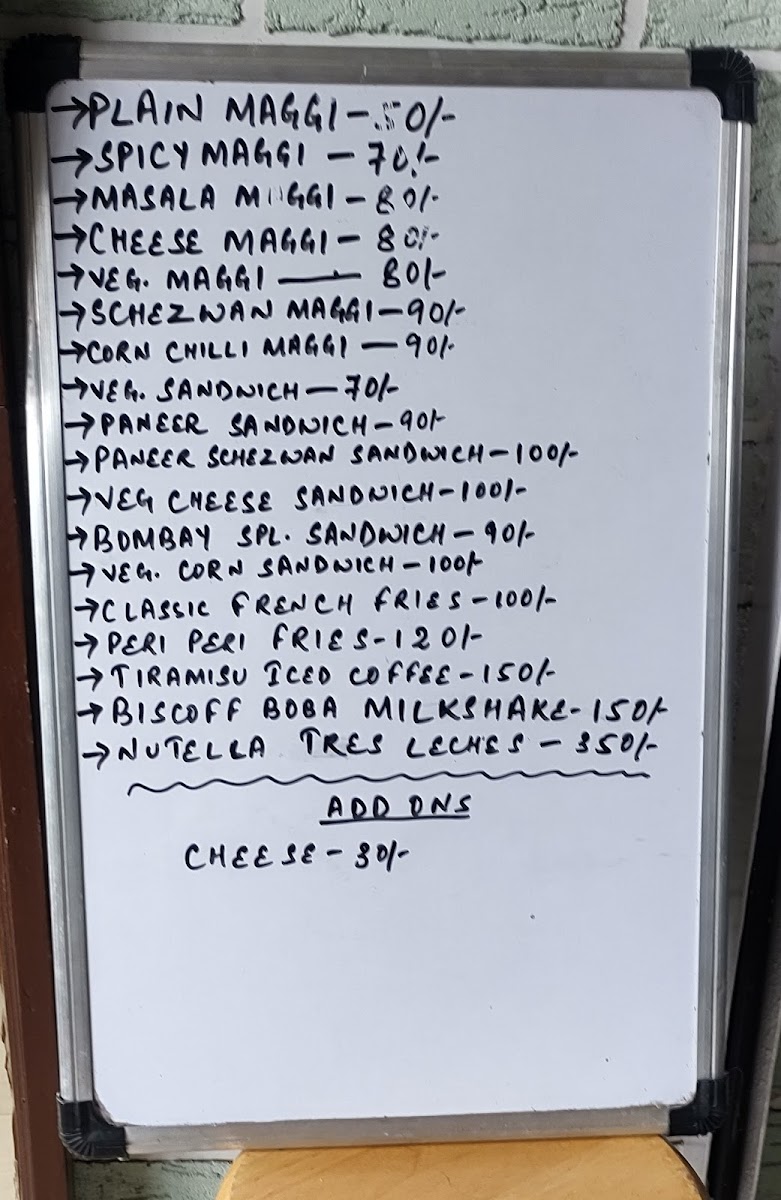 →PLAIN MAGGI-50/-
→SPICY MAGGI - 70/-
→MASALA MAGGI - 80/-
→CHEESE MAGGI - 80/-
→VEG. MAGGI - 80/-
→SCHEZWAN MAGGI-90/-
→CORN CHILLI MAGGI - 90/-
→VEG. SANDWICH - 70/-
→PANEER SANDWICH - 90/-
→PANEER SCHEZWAN SANDWICH - 100/-
→VEG CHEESE SANDWICH-100/-
→BOMBAY SPL. SANDWICH - 90/-
→VEG. CORN SANDWICH - 100/-
→CLASSIC FRENCH FRIES - 100/-
→PERI PERI FRIES-120/-
→TIRAMISU ICED COFFEE-150/-
→BISCOFF BOBA MILKSHAKE- 150/-
→NUTELLA TRES LECHES - 350/-
ADD ONS
CHEESE - 30/-